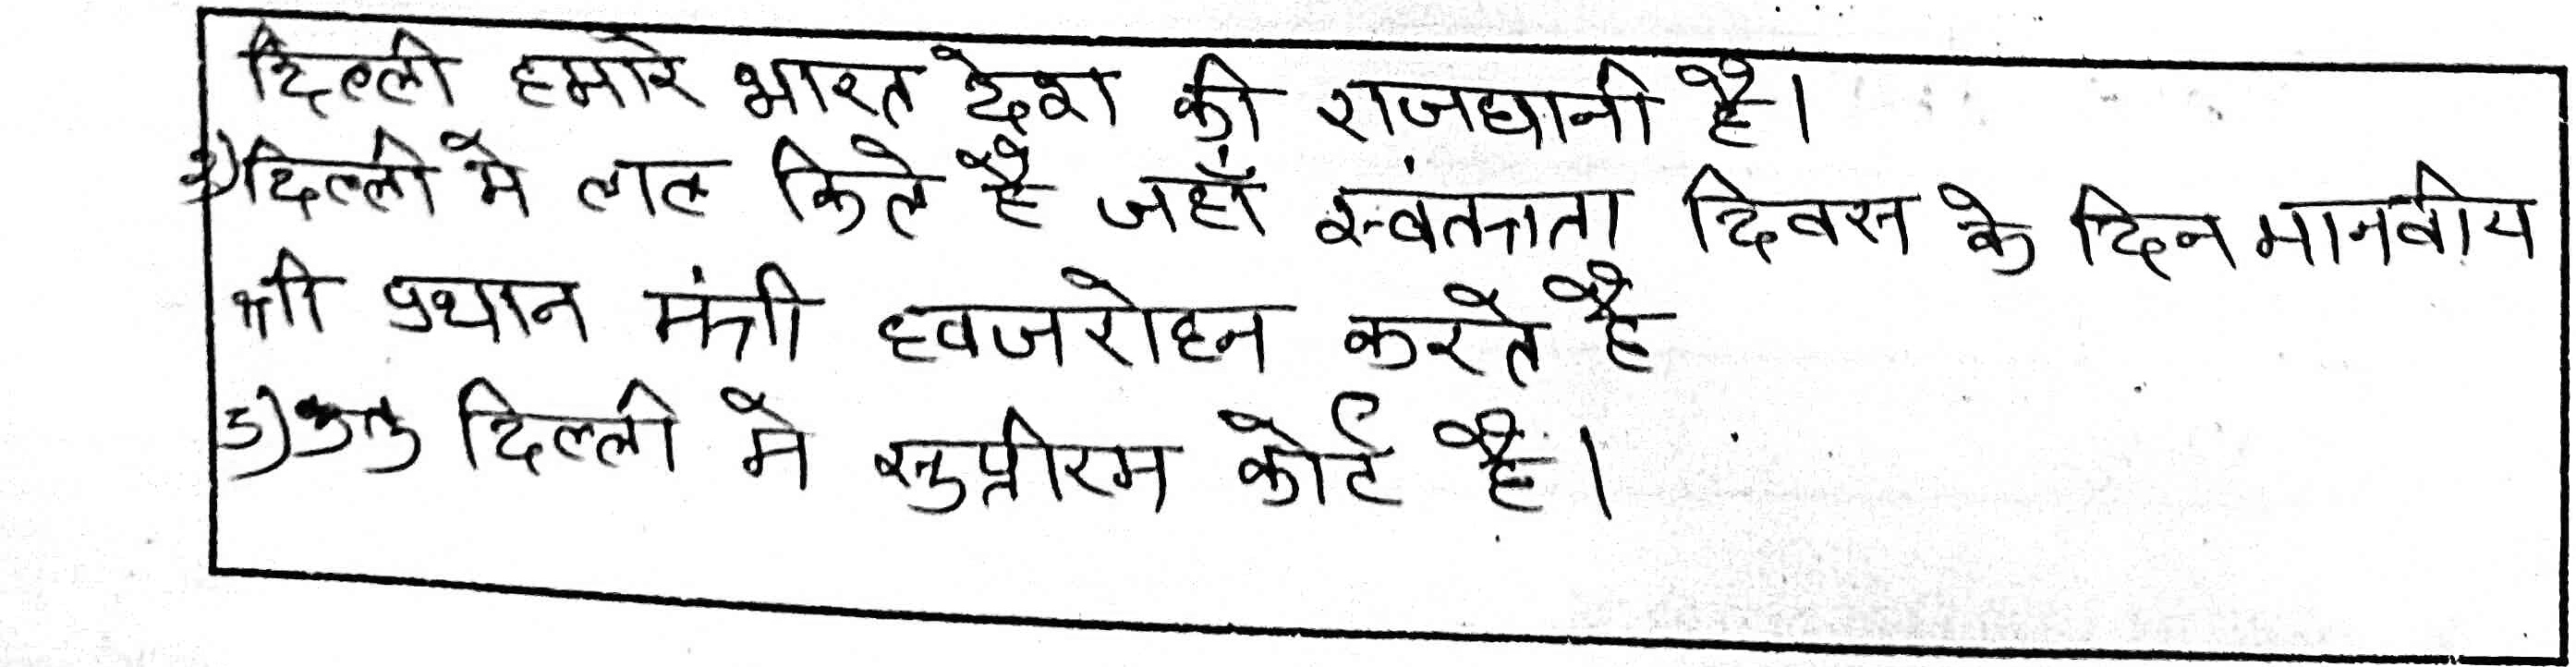 दिल्ली हमारे भारत देश की राजधानी है।
2) दिल्ली मे लाल किले है जहाँ स्वंतत्रता दिवस के दिन माननीय
श्री प्रधान मंत्री ध्वजरोहन करते है
3) दिल्ली मे सुप्रीरम कोर्ट है।